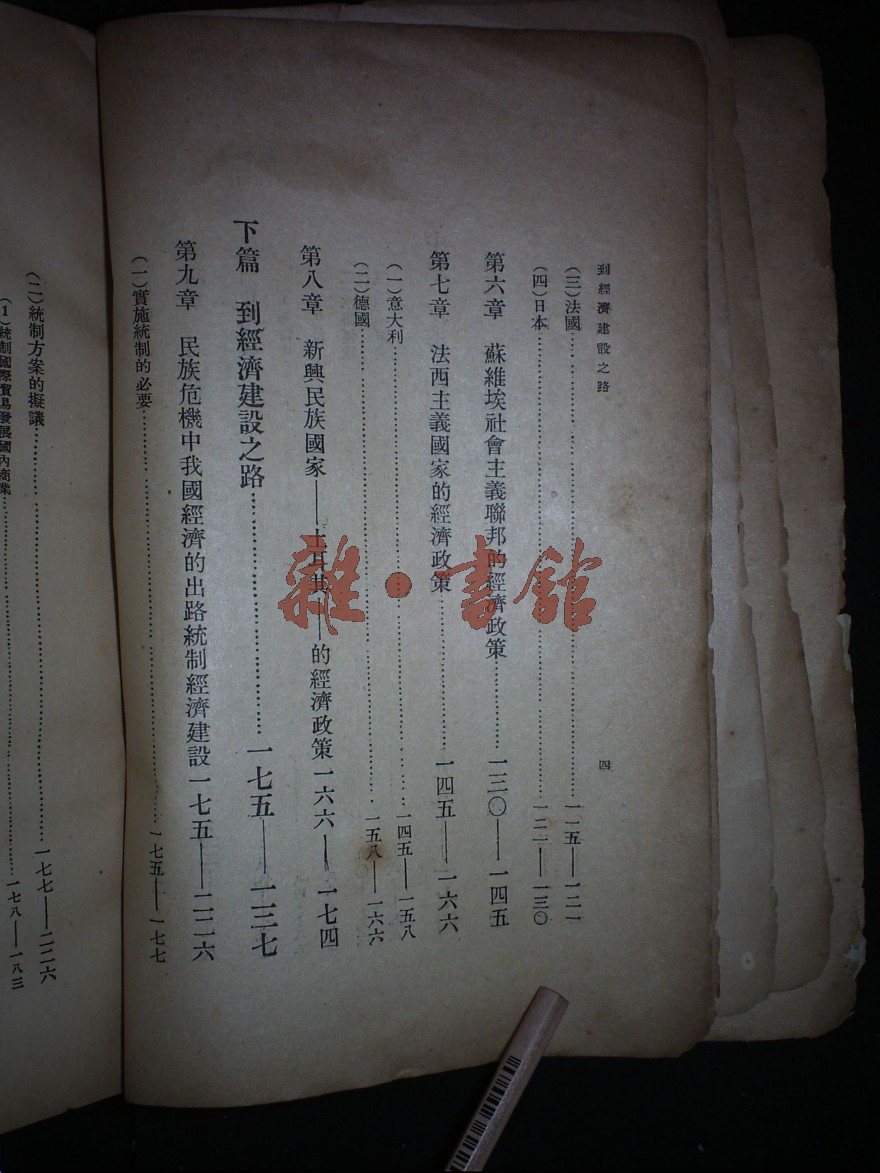 到經濟建設之路
四
(三)法國……一一五——一二一
(四)日本……一二一——一三〇
第六章 蘇維埃社會主義聯邦的經濟政策……一三〇——一四五
第七章 法西主義國家的經濟政策……一四五——一六六
(一)意大利……一四五——一五八
(二)德國……一五八——一六六
第八章 新興民族國家——土耳其——的經濟政策一六六——一七四
下篇 到經濟建設之路……一七五——二三七
第九章 民族危機中我國經濟的出路統制經濟建設一七五——二二六
(一)實施統制的必要……一七五——一七七
(二)統制方案的擬議……一七七——二二六
(1)統制國際貿易發展國內商業……一七八——一八三
雜·書館